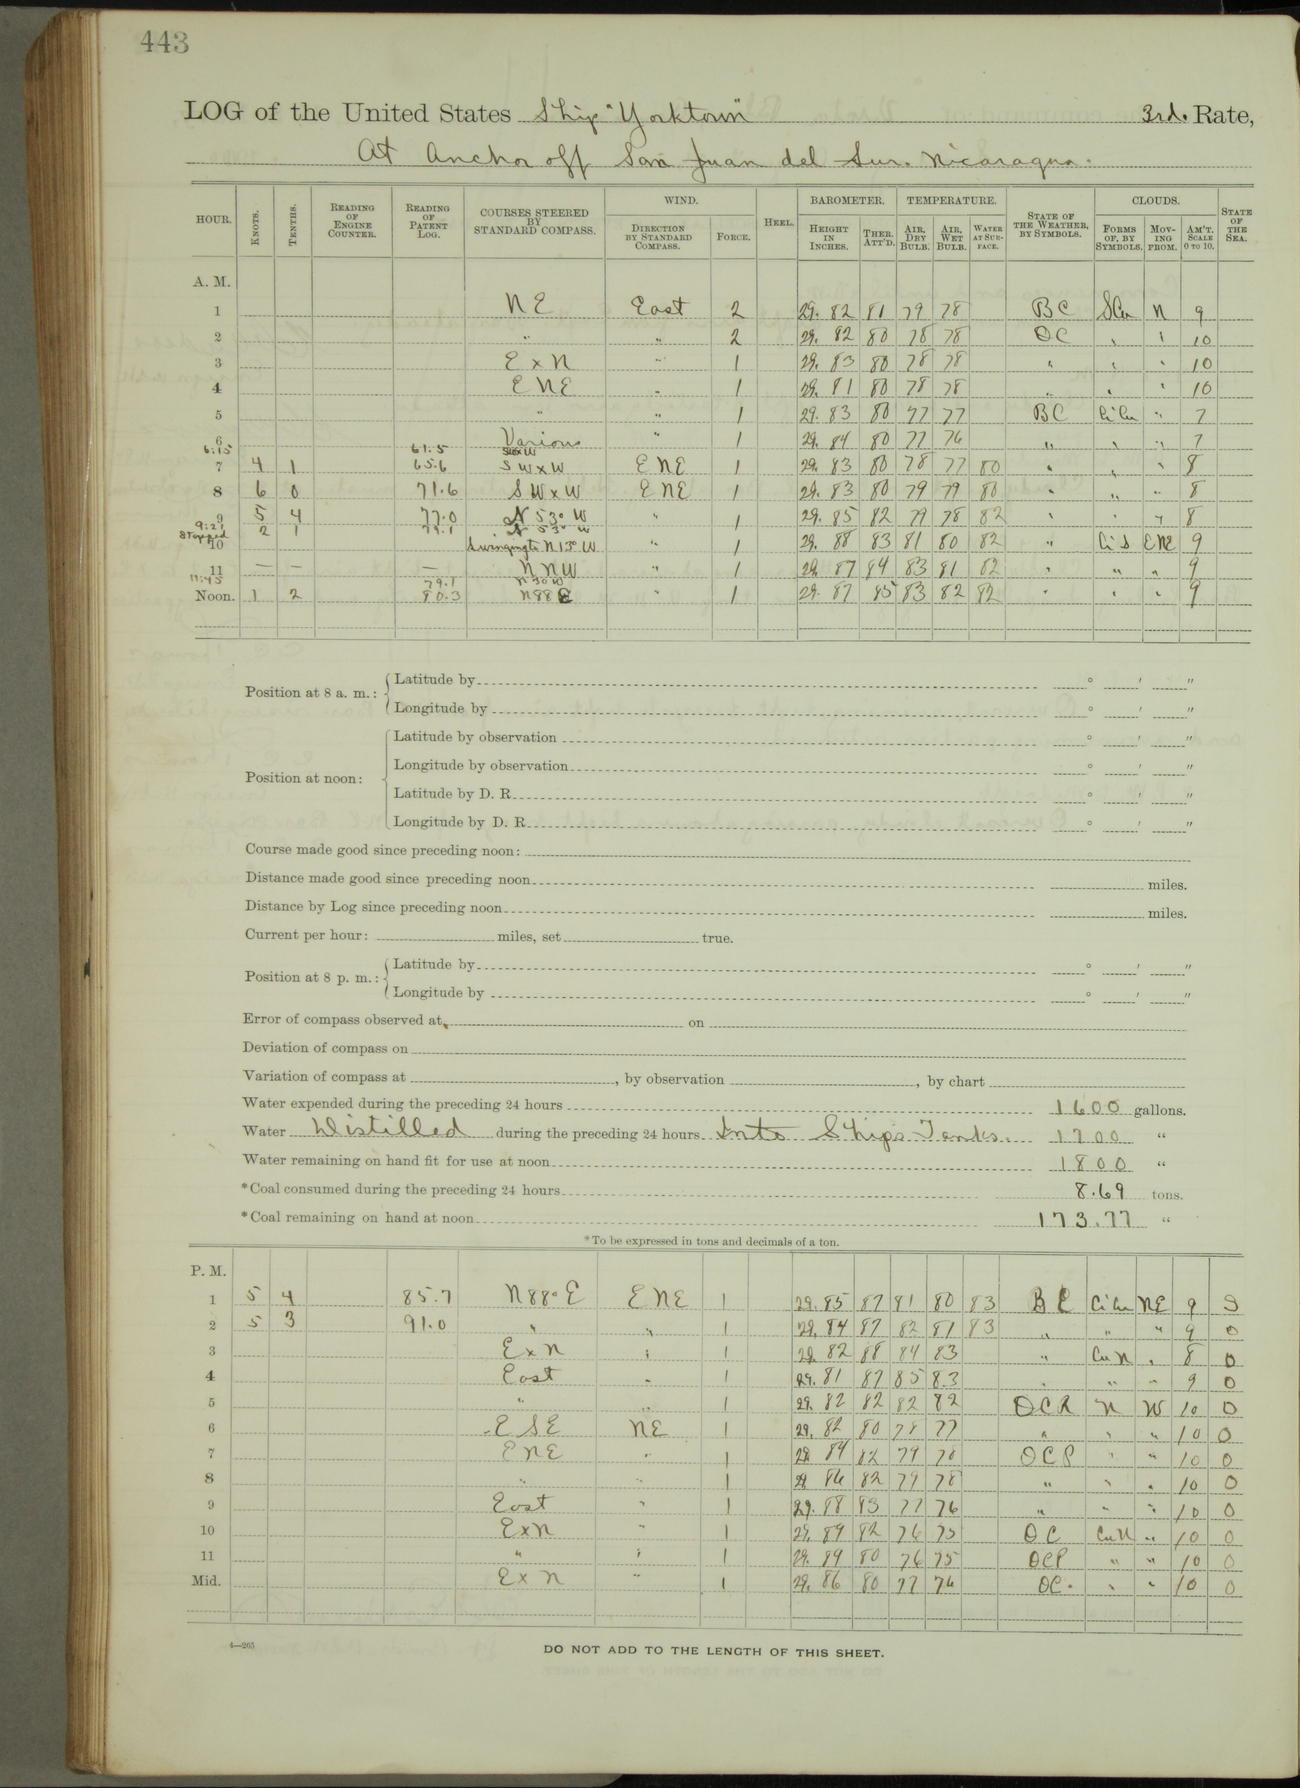 443
LOG of the United States Ship "Yorktown" 3rd. Rate,
At Anchor off San Juan del Sur. Nicaragua.
HOUR. KNOTS. TENTHS. READING OF ENGINE COUNTER. READING OF PATENT LOG. COURSES STEERED BY STANDARD COMPASS. WIND. DIRECTION BY STANDARD COMPASS. FORCE. HEEL. BAROMETER. HEIGHT IN INCHES. THER. ATT'D. TEMPERATURE. AIR, DRY BULB. AIR, WET BULB. WATER AT SUR-FACE. STATE OF THE WEATHER, BY SYMBOLS. CLOUDS. FORMS OF, BY SYMBOLS. MOV-ING FROM. AM'T. SCALE 0 TO 10. STATE OF THE SEA.
A. M.
1 NE East 2 29.82 81 79 78 BC SCu N 9
2 " " 2 29.82 80 78 78 OC " " 10
3 ExN " 1 29.83 80 78 78 " " " 10
4 ENE " 1 29.81 80 78 78 " " " 10
5 " " 1 29.83 80 77 77 BC CiCu " 7
6 Various " 1 29.84 80 77 76 " " " 7
6:15 61.5
7 4 1 65.6 SWxW ENE 1 29.83 80 78 77 80 " " " 8
8 6 0 71.6 SWxW ENE 1 29.83 80 79 79 80 " " " 8
9 5 4 77.0 N 53° W " 1 29.85 82 79 78 82 " " " 8
9:21 Stopped 2 1 79.1 N 53° W
10 Swinging to N 13° W " 1 29.88 83 81 80 82 " CiS ENE 9
11 — — — NNW " 1 29.87 84 83 81 82 " " " 9
11:45 79.1 N 30 W
Noon. 1 2 80.3 N 88 E " 1 29.87 85 83 82 82 " " " 9
Position at 8 a. m.: Latitude by ° ' "
Longitude by ° ' "
Position at noon: Latitude by observation ° ' "
Longitude by observation ° ' "
Latitude by D. R. ° ' "
Longitude by D. R. ° ' "
Course made good since preceding noon:
Distance made good since preceding noon miles.
Distance by Log since preceding noon miles.
Current per hour: miles, set true.
Position at 8 p. m.: Latitude by ° ' "
Longitude by ° ' "
Error of compass observed at on
Deviation of compass on
Variation of compass at , by observation , by chart
Water expended during the preceding 24 hours 1600 gallons.
Water Distilled during the preceding 24 hours Into Ships Tanks. 1700 "
Water remaining on hand fit for use at noon 1800 "
*Coal consumed during the preceding 24 hours 8.69 tons.
*Coal remaining on hand at noon 173.77 "
*To be expressed in tons and decimals of a ton.
P. M.
1 5 4 85.7 N 88° E ENE 1 29.85 87 81 80 83 BC CiCu NE 9 S
2 5 3 91.0 " " 1 29.84 87 82 81 83 " " " 9 0
3 ExN " 1 29.82 88 84 83 " CuN " 8 0
4 East " 1 29.81 87 85 83 " " " 9 0
5 " " 1 29.82 82 82 82 OCR N W 10 0
6 ESE NE 1 29.82 80 78 77 " " " 10 0
7 ENE " 1 29.84 82 79 78 OCP " " 10 0
8 " " 1 29.86 82 79 78 " " " 10 0
9 East " 1 29.88 83 77 76 " " " 10 0
10 ExN " 1 29.89 82 76 75 OC CuN " 10 0
11 " " 1 29.89 80 76 75 OCP " " 10 0
Mid. ExN " 1 29.86 80 77 76 OC. " " 10 0
4—265
DO NOT ADD TO THE LENGTH OF THIS SHEET.